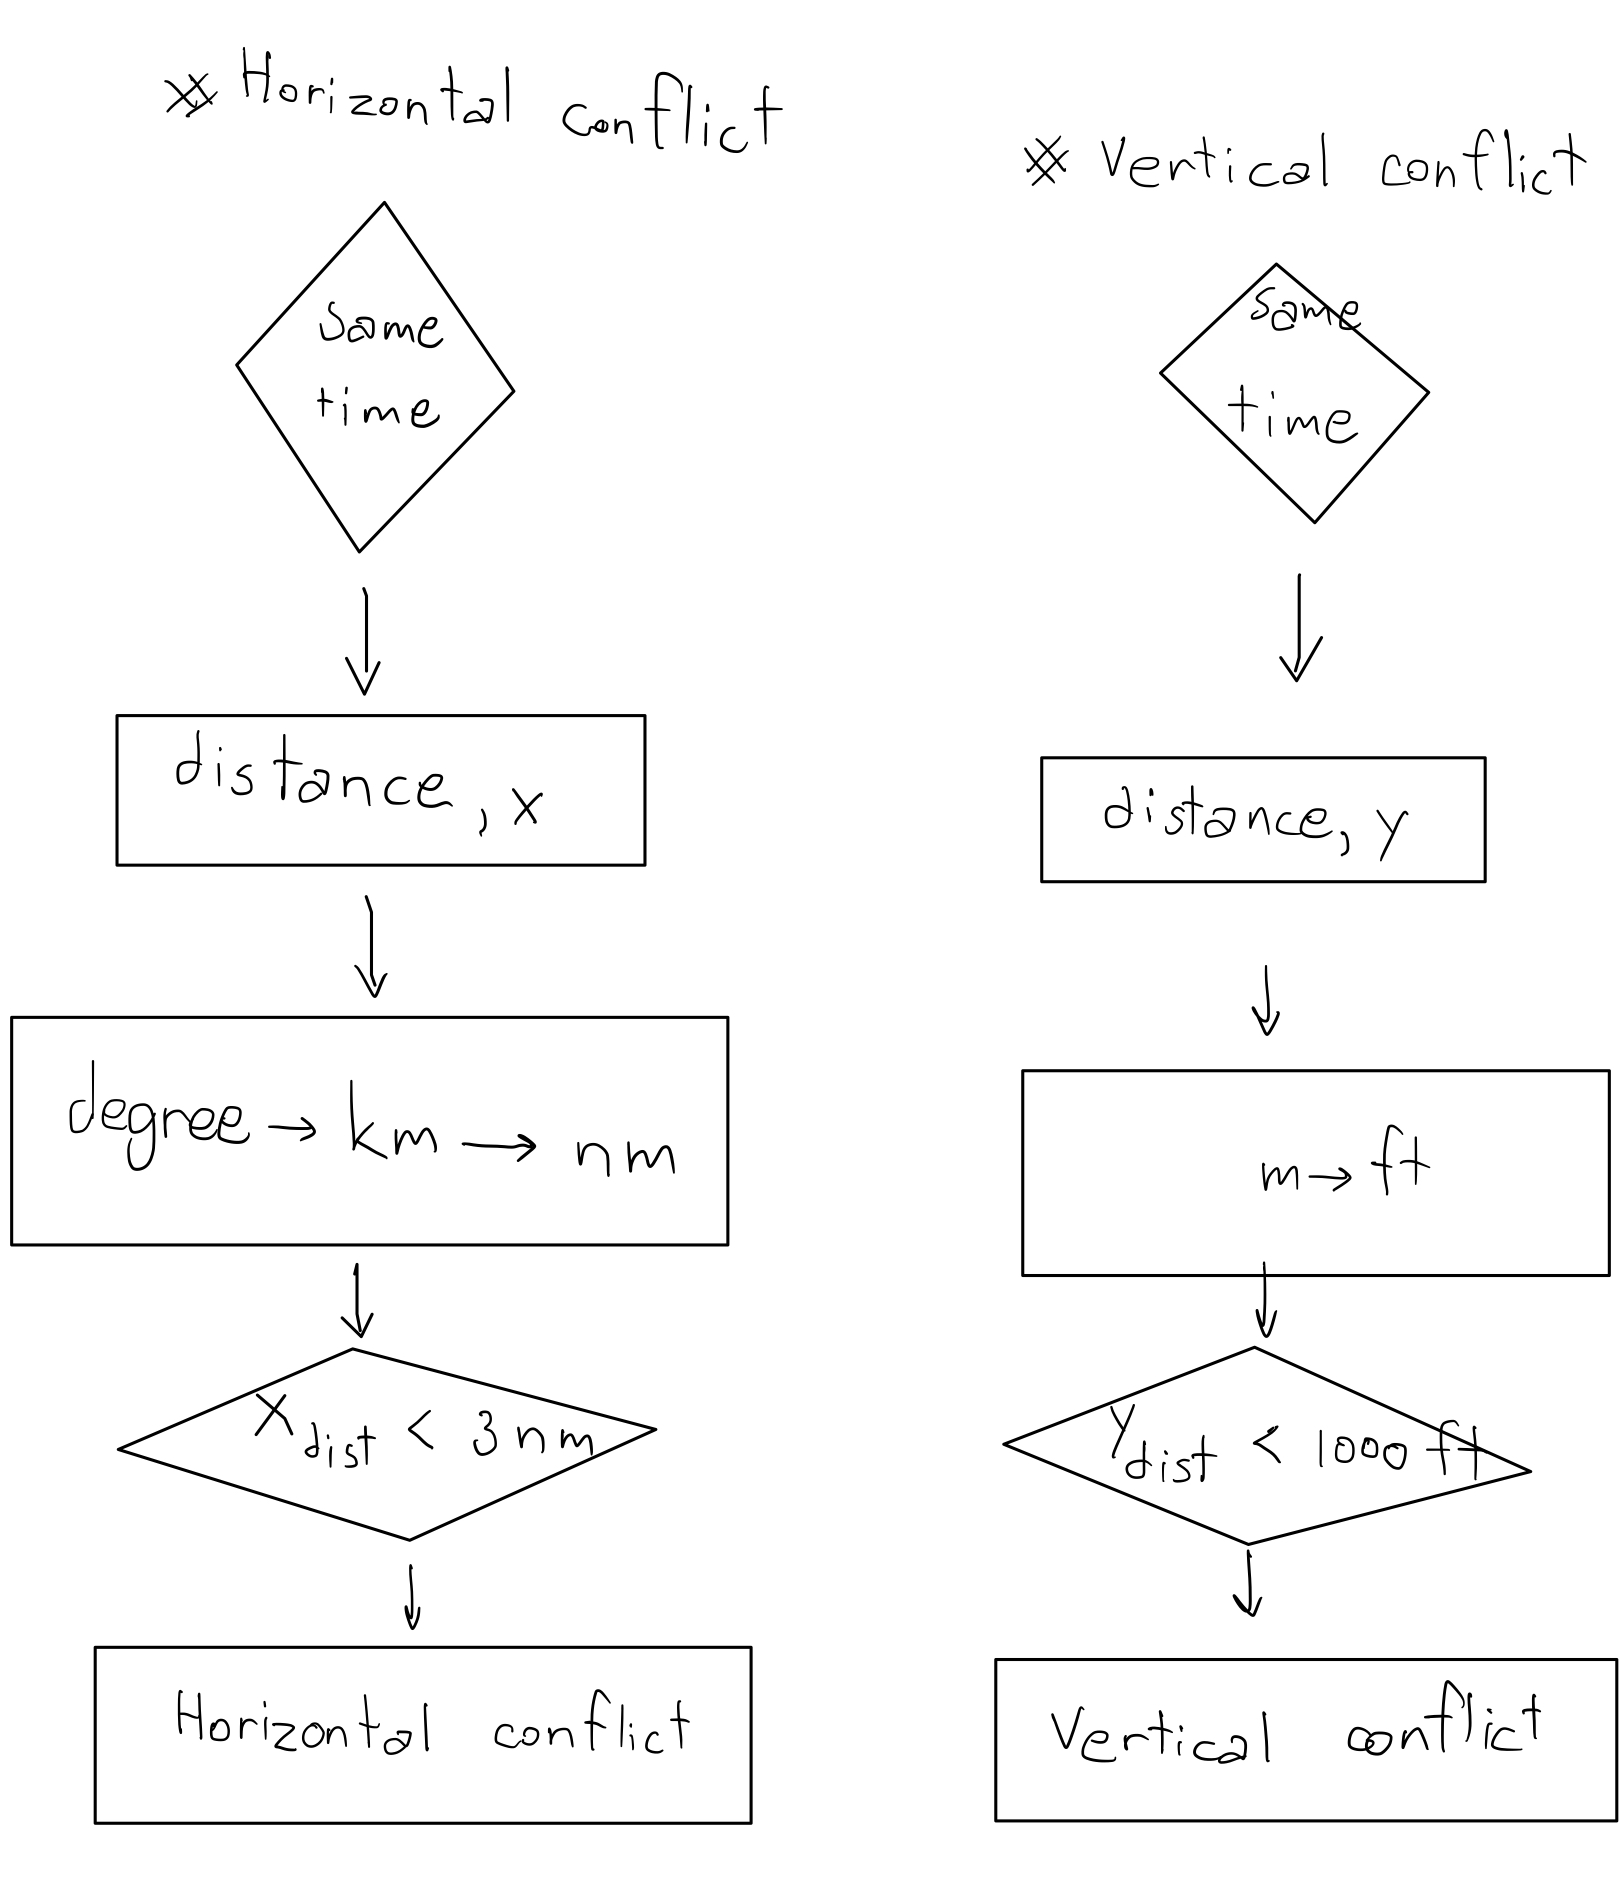 ※ Horizontal conflict
same
time
distance, x
degree → km → nm
X dist < 3 nm
Horizontal conflict
※ Vertical conflict
same
time
distance, y
m → ft
Y dist < 1000 ft
Vertical conflict